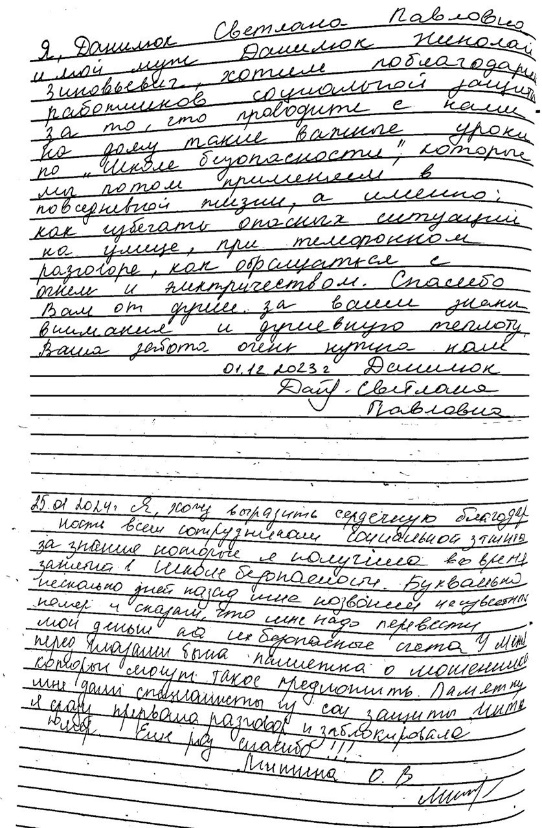 Я, Данилюк Светлана Павловна
и мой муж Данилюк Николай
Зиновьевич, хотим поблагодарить
работников социальной защиты
за то, что проводите с нами
на дому такие важные уроки
по "Школе безопасности", которые
мы потом применяем в
повседневной жизни, а именно:
как избегать опасных ситуаций
на улице, при телефонном
разговоре, как обращаться с
огнём и электричеством. Спасибо
Вам от души за ваши знаки
внимания и душевную теплоту.
Ваша забота очень нужна нам
01.12.2023г Данилюк
Светлана
Павловна
25.01 2024г. Я, хочу выразить сердечную благодар
ность всем сотрудникам социальной защиты
за знания которые я получила во время
занятия в Школе безопасности. Буквально
несколько дней назад мне позвонил неизвестный
номер и сказали, что мне надо перевести
мои деньги на их безопасные счета У меня
перед глазами была памятка о мошенниках
которые могут такое предложить. Памятку
мне дали специалисты из соц защиты.
я сразу прервала разговор и заблокировала
Ещё раз спасибо!!!
Митина О. В